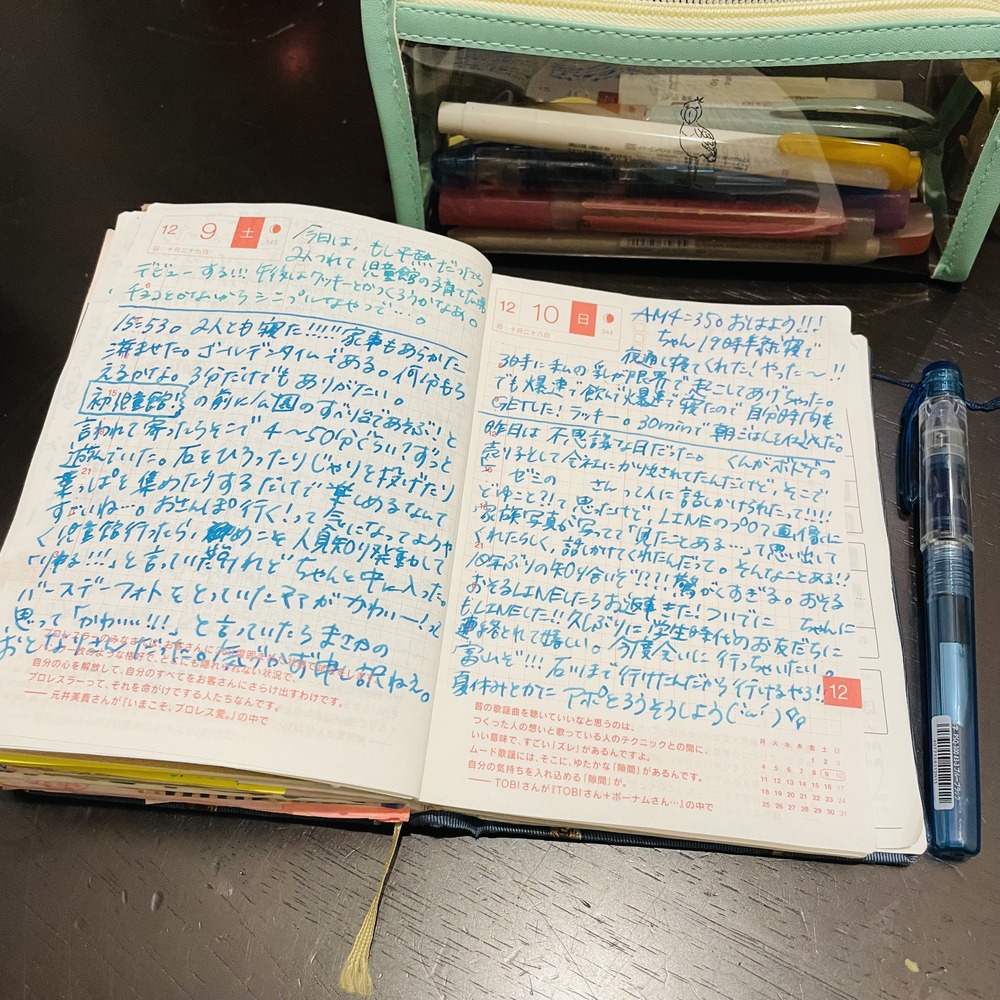 12 9 土
343
旧 十月二十七日
今日は、もし平熱だったら
2人つれて児童館の子育て広場
デビューする!!! 午後はクッキーとかつくろうかなあ。
チョコとかないからシンプルなやつで…。
15:53。2人とも寝た!!!!! 家事もあらかた
済ませた。ゴールデンタイムである。何分もら
えるかな。3分だけでもありがたい。
初児童館!! の前に公園のすべり台であそぶ!と
言われて寄ったらそこで4〜50分ぐらい?ずっと
遊んでいた。石をひろったりじゃりを投げたり
葉っぱを集めたりするだけで楽しめるなんて
すごいね…。おさんぽ行く!って気になってようや
く児童館行ったら、めこを人見知り発動して
「帰る!!!」と言っていたけれどちゃんと中に入った。
バースデーフォトをとっていたママがかわいー!っと
思って「かわいい!!!」と言っていたらまさかの
おとなりさんだった。気づかず申し訳ねえ。
プロレスラーのみなさんは、お客さんに
パンツ一枚のような格好で、どこにも隠れられない状況で、
自分の心を解放して、自分のすべてをお客さんにさらけ出すわけです。
プロレスラーって、それを命がけでする人たちなんです。
―― 元井美貴さんが『いまこそ、プロレス愛。』の中で
12 10 日
344
旧 十月二十八日
AM4:35。おはよう!!!
ちゃん19時半就寝で
夜通し寝てくれた!やった〜!!
3時に私の乳が限界で起こしてあげちゃった。
でも爆速で飲んで爆速で寝たので自分時間も
GETした!ラッキー。30minで朝ごはんを仕込めた。
昨日は不思議な日だった。 くんがボドゲの
売り子として会社にかり出されてたんだけど、そこで
ゼミの さんって人に話しかけられたって!!!!
どゆこと?!って思ったけど、LINEのプロフ画像に
家族写真が写ってて「見たことある…って思い出して
くれたらしく、話しかけてくれたんだって。そんなことある!?
10年ぶりの知り合いぞ!?!! 驚がくすぎる。おそる
おそるLINEしたらお返事きた!ついでに ちゃんに
もLINEした!! 久しぶりに学生時代のお友だちに
連絡とれて嬉しい。今度会いに行っちゃいたい。
富山ぞ!!! 石川まで行けたんだから行けるやろ!!
夏休みとかに アポとろうそうしよう
12
昔の歌謡曲を聴いていいなと思うのは、
つくった人の想いと歌っている人のテクニックとの間に、
いい意味で、すごい「ズレ」があるんですよ。
ムード歌謡には、そこに、ゆたかな「隙間」があるんです。
自分の気持ちを入れ込める「隙間」が。
―― TOBIさんが『TOBIさん+ボーナムさん…』の中で
月 火 水 木 金 土 日
1 2 3
4 5 6 7 8 9 10
11 12 13 14 15 16 17
18 19 20 21 22 23 24
25 26 27 28 29 30 31